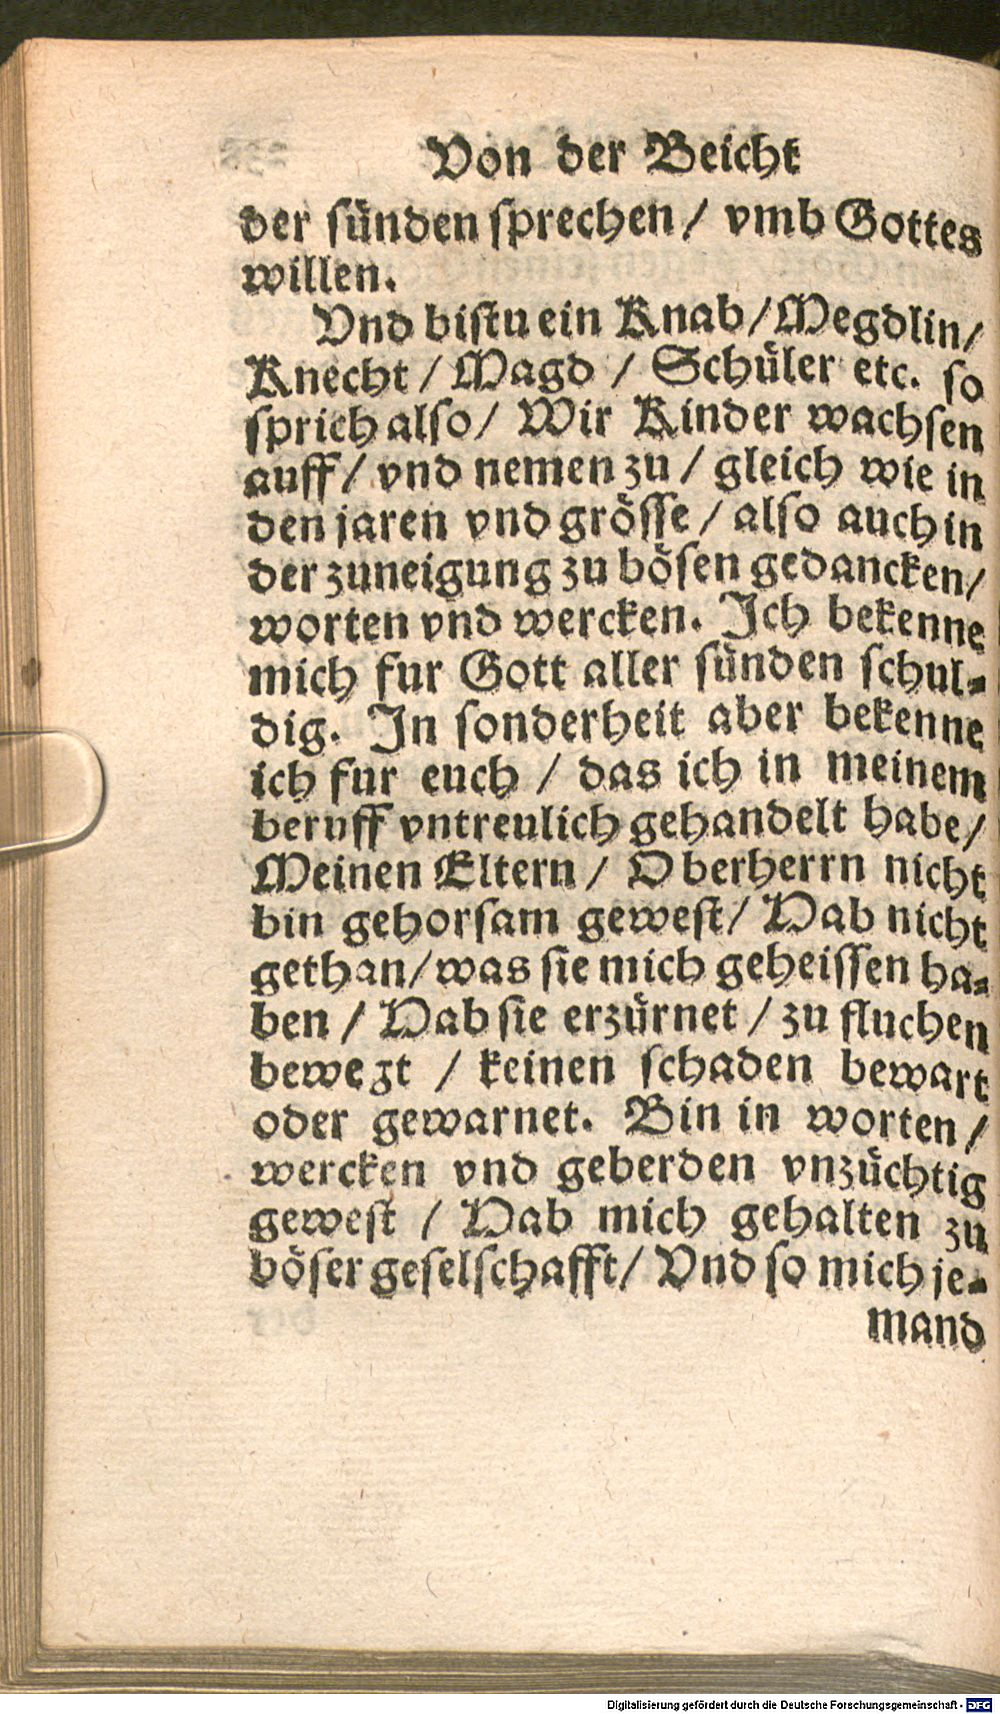 Von der Beicht
der sünden sprechen / vmb Gottes
willen.
Vnd bistu ein Knab / Megdlin /
Knecht / Magd / Schüler etc. so
sprich also / Wir Kinder wachsen
auff / vnd nemen zu / gleich wie in
den jaren vnd grösse / also auch in
der zuneigung zu bösen gedancken /
worten vnd wercken. Ich bekenne
mich fur Gott aller sünden schul-
dig. In sonderheit aber bekenne
ich fur euch / das ich in meinem
beruff vntreulich gehandelt habe /
Meinen Eltern / Oberherrn nicht
bin gehorsam gewest / Hab nicht
gethan / was sie mich geheissen ha-
ben / Hab sie erzürnet / zu fluchen
bewegt / keinen schaden bewart
oder gewarnet. Bin in worten /
wercken vnd geberden vnzüchtig
gewest / Hab mich gehalten zu
böser geselschafft / Vnd so mich je-
mand
Digitalisierung gefördert durch die Deutsche Forschungsgemeinschaft - DFG